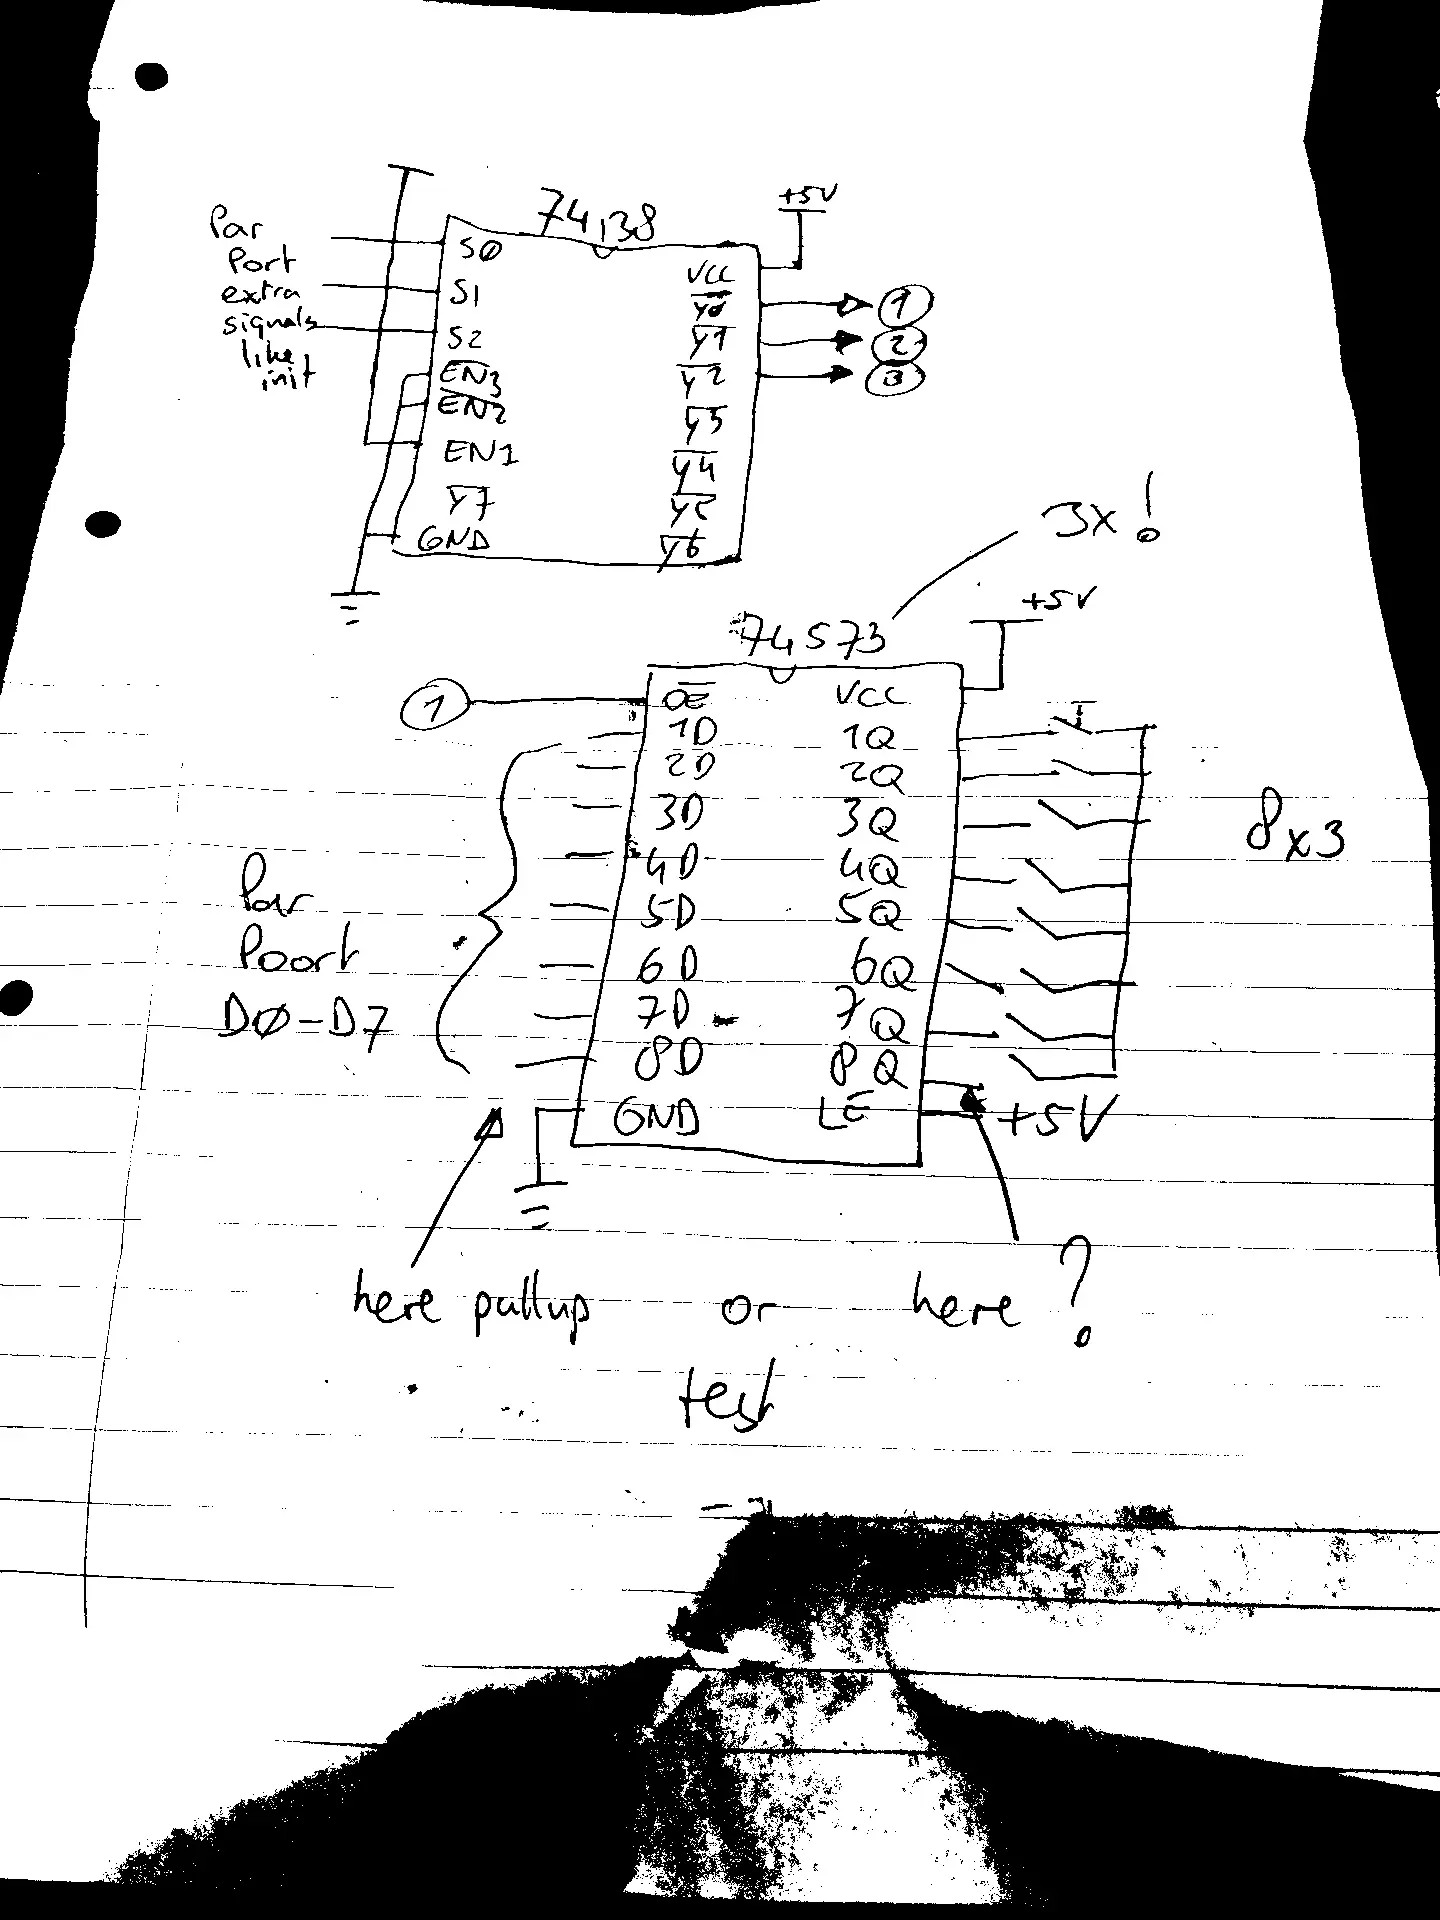 74138
+5V
Par
Port
extra
signals
like
init
S0
S1
S2
EN3
EN2
EN1
Y7
GND
VCC
Y0
Y1
Y2
Y3
Y4
Y5
Y6
1
2
3
3x!
74573
+5V
1
OE
1D
2D
3D
4D
5D
6D
7D
8D
GND
VCC
1Q
2Q
3Q
4Q
5Q
6Q
7Q
8Q
LE
+5V
8x3
Par
Poort
D0-D7
here pullup or here?
test